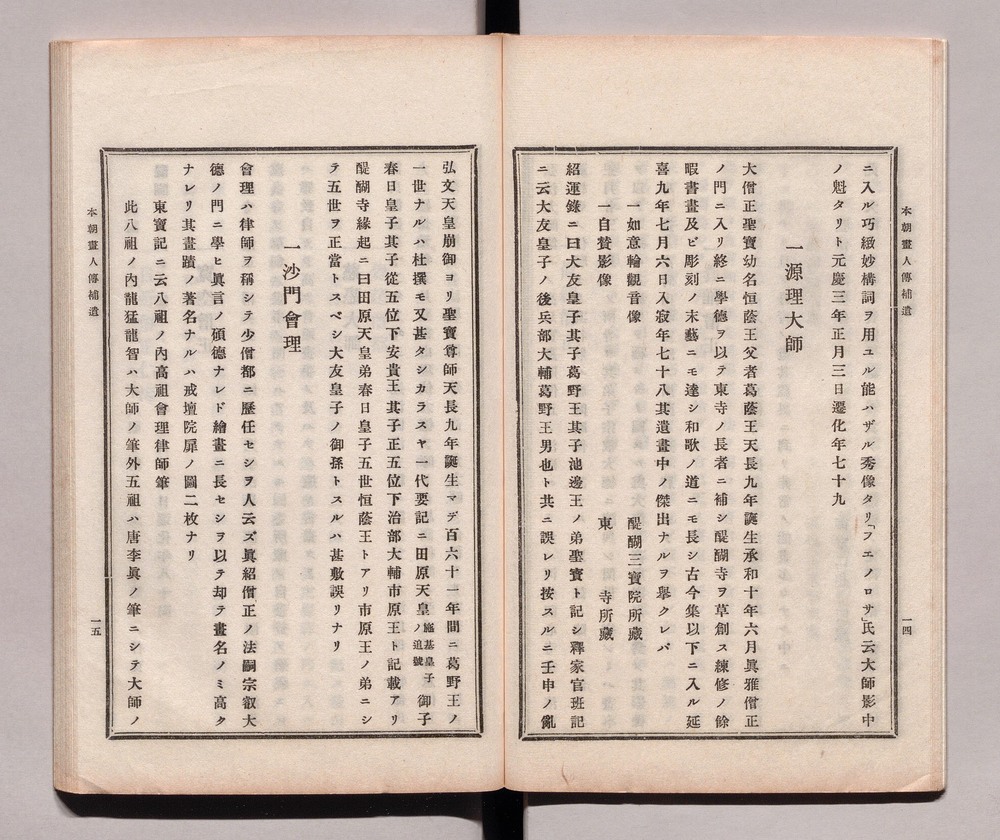 本朝畫人傳補遺
一四
ニ入ル巧緻妙構詞ヲ用ユル能ハザル秀像タリ「フエノロサ」氏云大師影中
ノ魁タリト元慶三年正月三日遷化年七十九
一源理大師
大僧正聖寶幼名恒蔭王父者葛蔭王天長九年誕生承和十年六月眞雅僧正
ノ門ニ入リ終ニ學德ヲ以テ東寺ノ長者ニ補シ醍醐寺ヲ草創ス練修ノ餘
暇書畫及ビ彫刻ノ末藝ニモ達シ和歌ノ道ニモ長シ古今集以下ニ入ル延
喜九年七月六日入寂年七十八其遺畫中ノ傑出ナルヲ擧クレバ
一如意輪觀音像 醍醐三寶院所藏
一自賛影像 東寺所藏
紹運錄ニ曰大友皇子其子葛野王其子池邊王ノ弟聖寶ト記シ釋家官班記
ニ云大友皇子ノ後兵部大輔葛野王男也ト共ニ誤レリ按スルニ壬申ノ亂
弘文天皇崩御ヨリ聖寶尊師天長九年誕生マデ百六十一年間ニ葛野王ノ
一世ナルハ杜撰モ又甚タシカラスヤ一代要記ニ田原天皇施基皇子ノ追號御子
春日皇子其子從五位下安貴王其子正五位下治部大輔市原王ト記載アリ
醍醐寺緣起ニ曰田原天皇弟春日皇子五世恒蔭王トアリ市原王ノ弟ニシ
テ五世ヲ正當トスベシ大友皇子ノ御孫トスルハ甚敷誤リナリ
一沙門會理
會理ハ律師ヲ稱シテ少僧都ニ歷任セシヲ人云ズ眞紹僧正ノ法嗣宗叡大
德ノ門ニ學ヒ眞言ノ碩德ナレド繪畫ニ長セシヲ以テ却テ畫名ノミ高タ
ナレリ其畫蹟ノ著名ナルハ戒壇院扉ノ圖二枚ナリ
東寶記ニ云八祖ノ內高祖會理律師筆
此八祖ノ內龍猛龍智ハ大師ノ筆外五祖ハ唐李眞ノ筆ニシテ大師ノ
本朝畫人傳補遺
一五